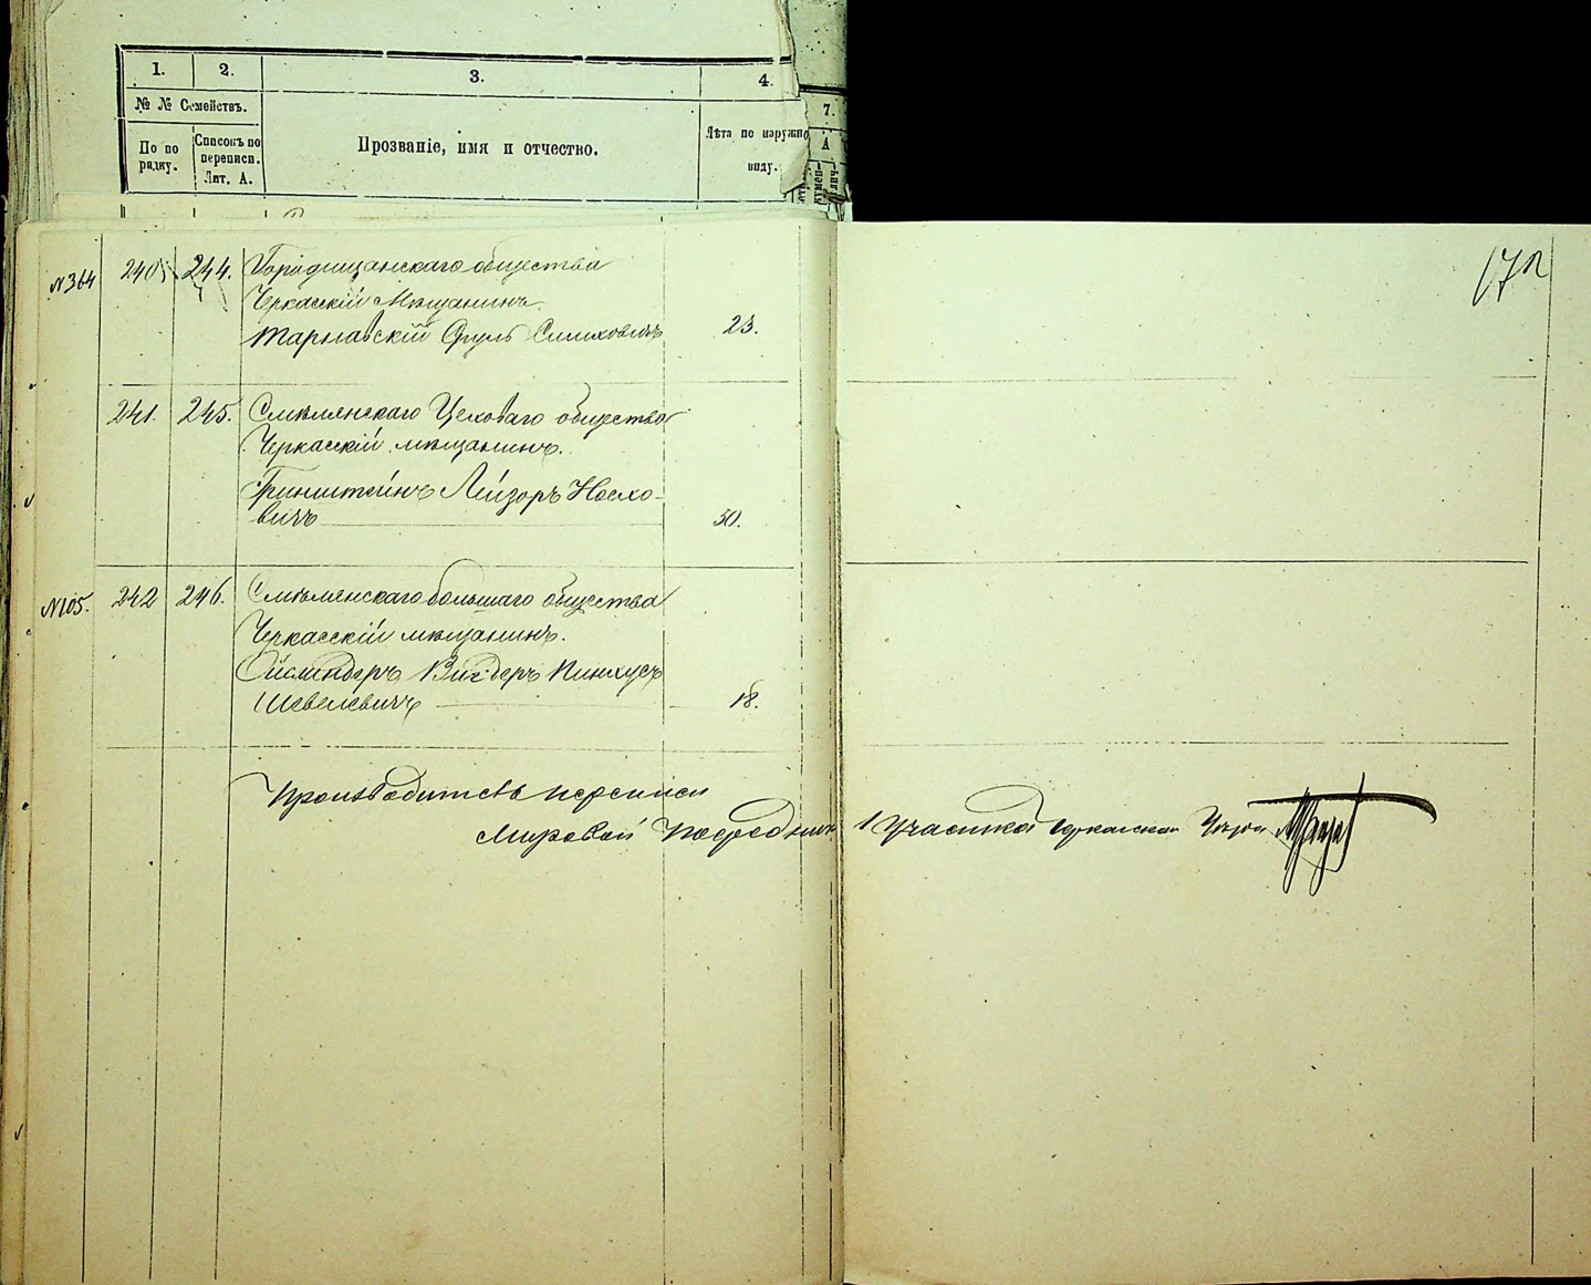 1.
2.
3.
4.
7.
№ № Семействъ.
По по
рядку.
Списокъ по
переписи.
Лит. А.
Прозваніе, имя и отчество.
Лѣта по наружно
виду.
А
№364
240
244.
Городищанскаго общества
Черкасскій мѣщанинъ.
Тарнавскій Сруль Симховичъ
23.
241.
245.
Смѣлянскаго Цеховаго общества
Черкасскій мѣщанинъ.
Гринштейнъ Лейзоръ Носхо-
вичъ
50.
№105.
242
246.
Смѣлянскаго большаго общества
Черкасскій мѣщанинъ.
Вигдеръ Пинхусъ
Шевелевичъ
18.
Производитель переписи
Мировой Посредникъ 1 Участка Черкасскаго Уѣзда